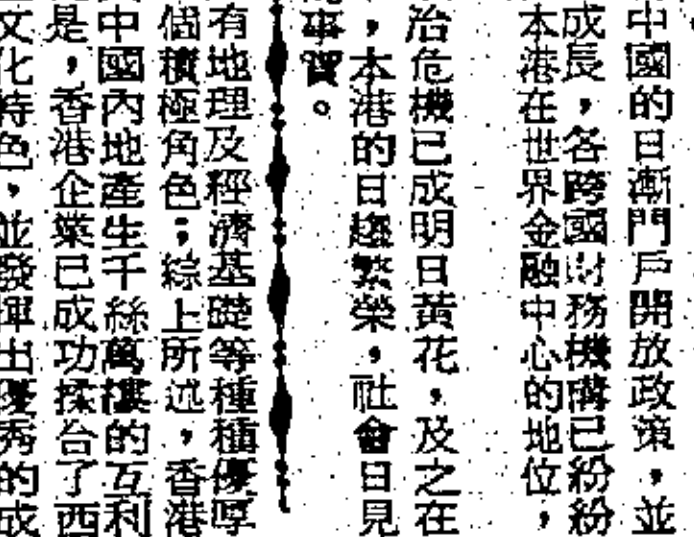 中國的日漸門戶開放政策，並
成長，各跨國財務機構已紛紛
本港在世界金融中心的地位，
治危機已成明日黃花，及之在
，本港的日趨繁榮，社會日見
事實。
有地理及經濟基礎等種種優厚
個積極角色；綜上所述，香港
中國內地產生千絲萬樓的互利
是，香港企業已成功揉合了西
文化特色，並發揮出優秀的成